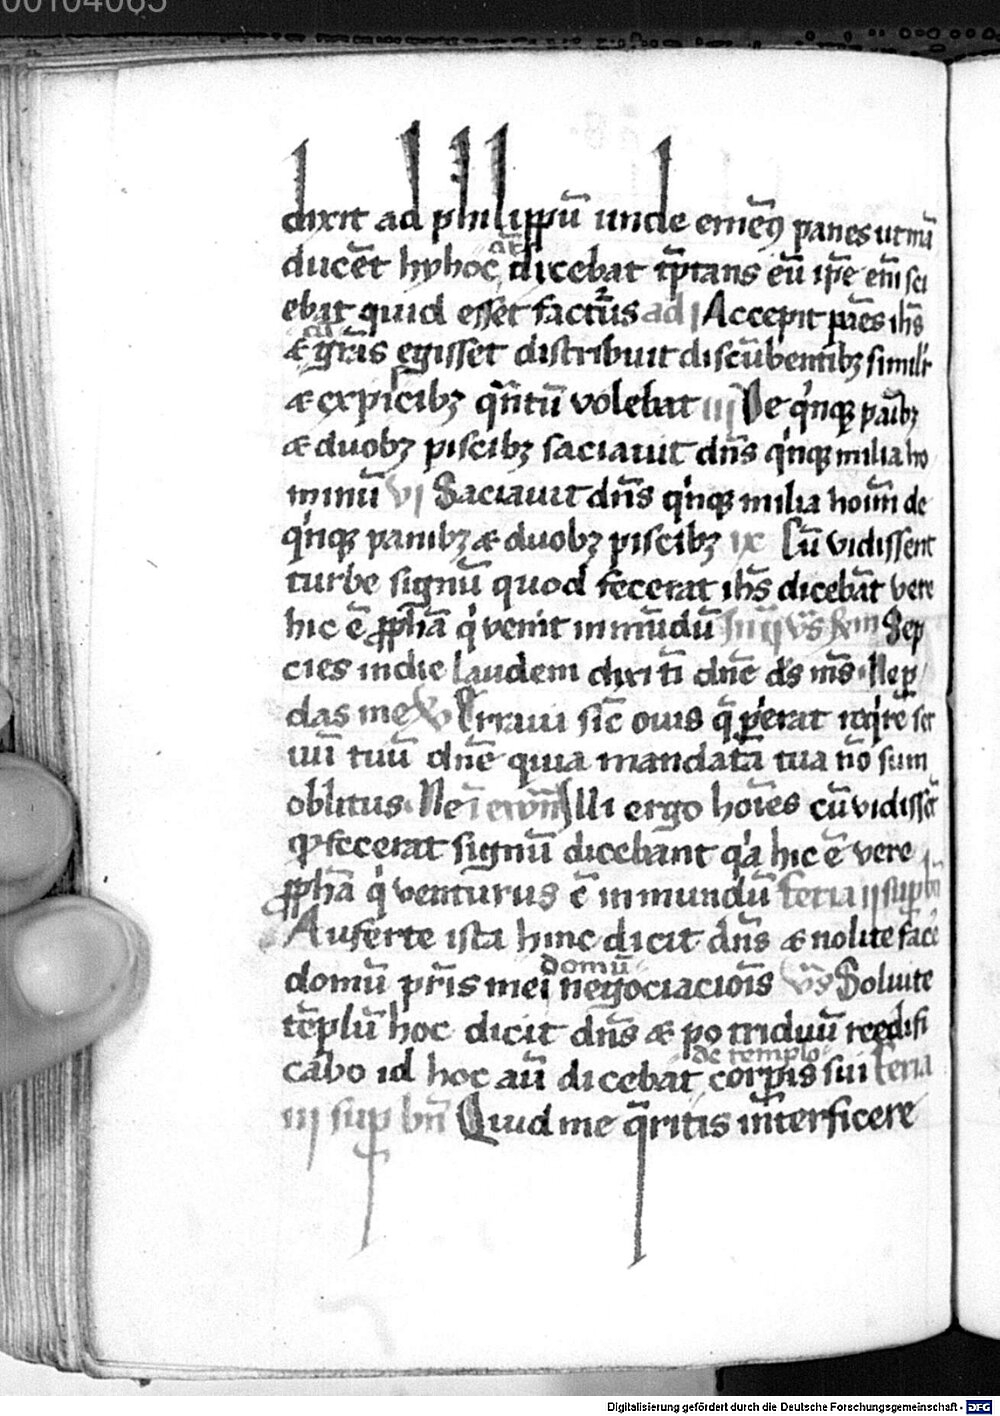 00104065
dixit ad philippũ unde emẽꝰ panes ut mã
ducẽt hyhoc dicebat tp̃tans eũ ip̃e em̃ sci
ebat quid esset factũs ad j Accepit pães ihs̃
& gr̃as egisset distribuit discũbentibꝫ simil͛r
& ex piscibꝫ qñtũ volebat iij De qͥnqꝫ paĩbꝫ
& duobꝫ piscibꝫ saciauit dñs qͥnqꝫ milia ho
minũ vi Saciauit dñs qͥnqꝫ milia hom̃ de
qͥnqꝫ panibꝫ & duobꝫ piscibꝫ ix Cũ vidissent
turbe signũ quod fecerat ihs̃ dicebãt vere
hic ẽ ꝓph̃a qͥ venit in mũdũ vs̃ Sep
cies in die laudem dixi ti dñe ds̃ ms̃ Ne ꝑ
das me Erraui sic̃ ouis q̃ ꝑierat req̃re ser
uũ tuũ dñe quia mandatã tua nõ sum
oblitus Ne ĩ ewñ Illi ergo hoĩes cũ vidissẽt
qͩ fecerat signũ dicebãnt qͥa hic ẽ vere
ꝓph̃a qͥ venturus ẽ in mundũ feria ij sup bñ
Auferte ista hinc dicit dñs & nolite face͛
domũ pr̃is mei negociaciõis vs̃ Soluite
domũ
tẽplũ hoc dicit dñs & po triduũ reedifi
cãbo id hoc aũ dicebat corꝑis sui feria
de templo
iij sup bñ Quid me q̃ritis int̃erficere
Digitalisierung gefördert durch die Deutsche Forschungsgemeinschaft - DFG